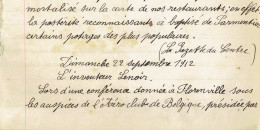 mortalisé sur la carte de nos restaurants, en effet
la postérité reconnaissante a baptisé de Parmentier
certains potages des plus populaires.
(La Gazette du Centre)
Dimanche 22 septembre 1912
L'inventeur Lenoir.
Lors d'une conférence donnée à Florenville sous
les auspices de l'Aéro club de Belgique, présidée par